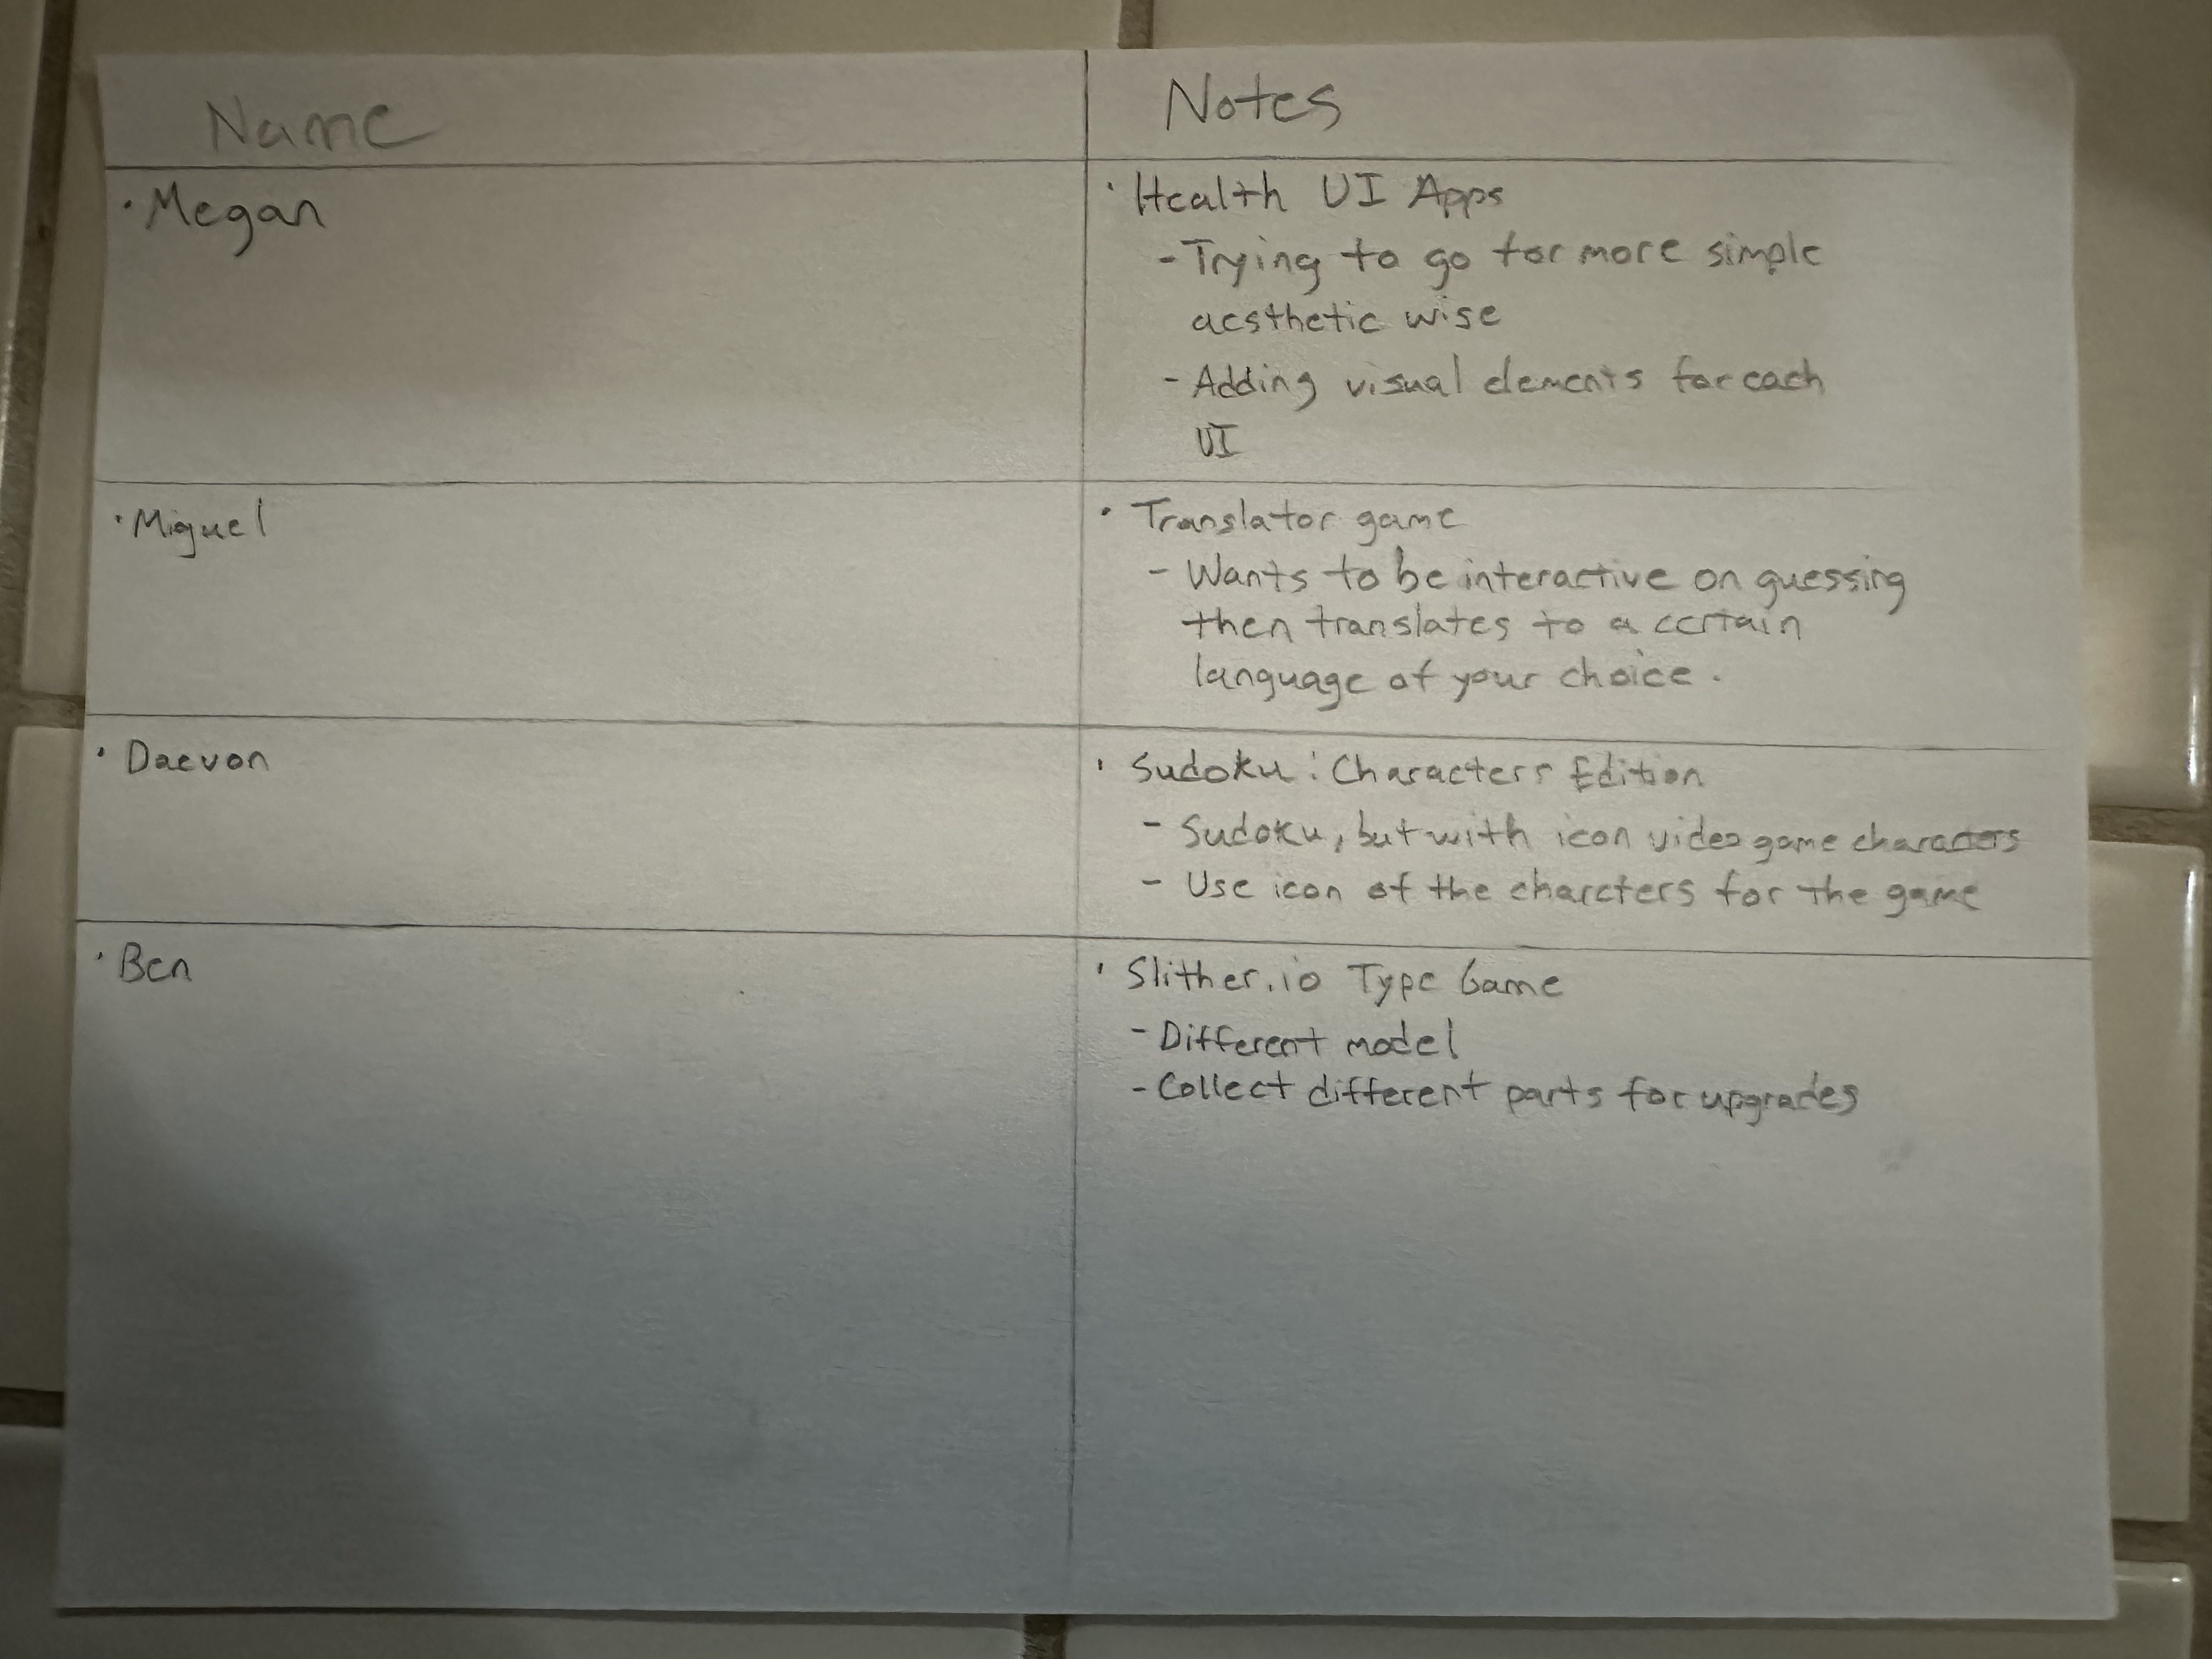 Name
Notes
· Megan
· Health UI Apps
- Trying to go for more simple
aesthetic wise
- Adding visual elements for each
UI
· Miguel
· Translator game
- Wants to be interactive on guessing
then translates to a certain
language of your choice.
· Daevon
· Sudoku: Characters Edition
- Sudoku, but with icon video game characters
- Use icon of the charcters for the game
· Ben
· Slither.io Type Game
- Different model
- Collect different parts for upgrades